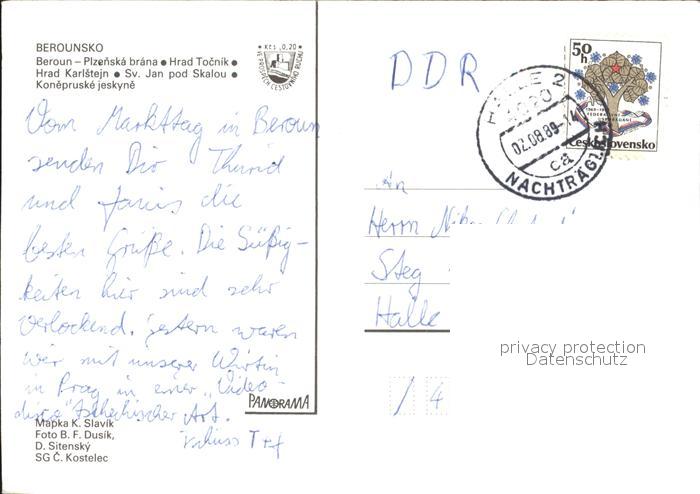 BEROUNSKO
Beroun – Plzeňská brána • Hrad Točník •
Hrad Karlštejn • Sv. Jan pod Skalou •
Koněpruské jeskyně
Kčs 0,20
VE PROSPĚCH CESTOVNÍHO RUCHU
Vom Markttag in Beroun
senden Dir Thurid
und Janis die
besten Grüße. Die Süßig-
keiten hier sind sehr
verlockend. gestern waren
wir mit unserer Wirtin
in Prag in einer „Video-
disco" tschechischer Art.
PANORAMA
Mapka K. Slavík
Foto B. F. Dusík,
D. Sitenský
SG Č. Kostelec
DDR
50h
Československo
HALLE 2
4020
02.08.89-14
ca
NACHTRÄGLICH
An
Herrn
Steg
Halle
privacy protection
Datenschutz
/ 4